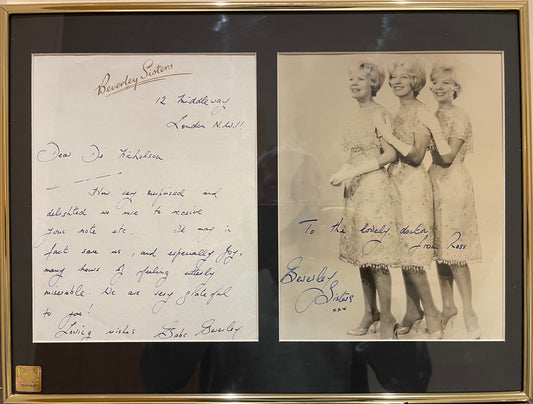 Beverley Sisters
12 Middleway
London N.W.11.
Dear Dr Nicholson
How very surprised and
delighted we were to receive
your note etc. it may in
fact save us, and especially Joy,
many hours of feeling utterly
miserable. We are very grateful
to you!
Loving wishes Babs Beverley
To the lovely doctor
from Ross
Beverley
Sisters
xxx